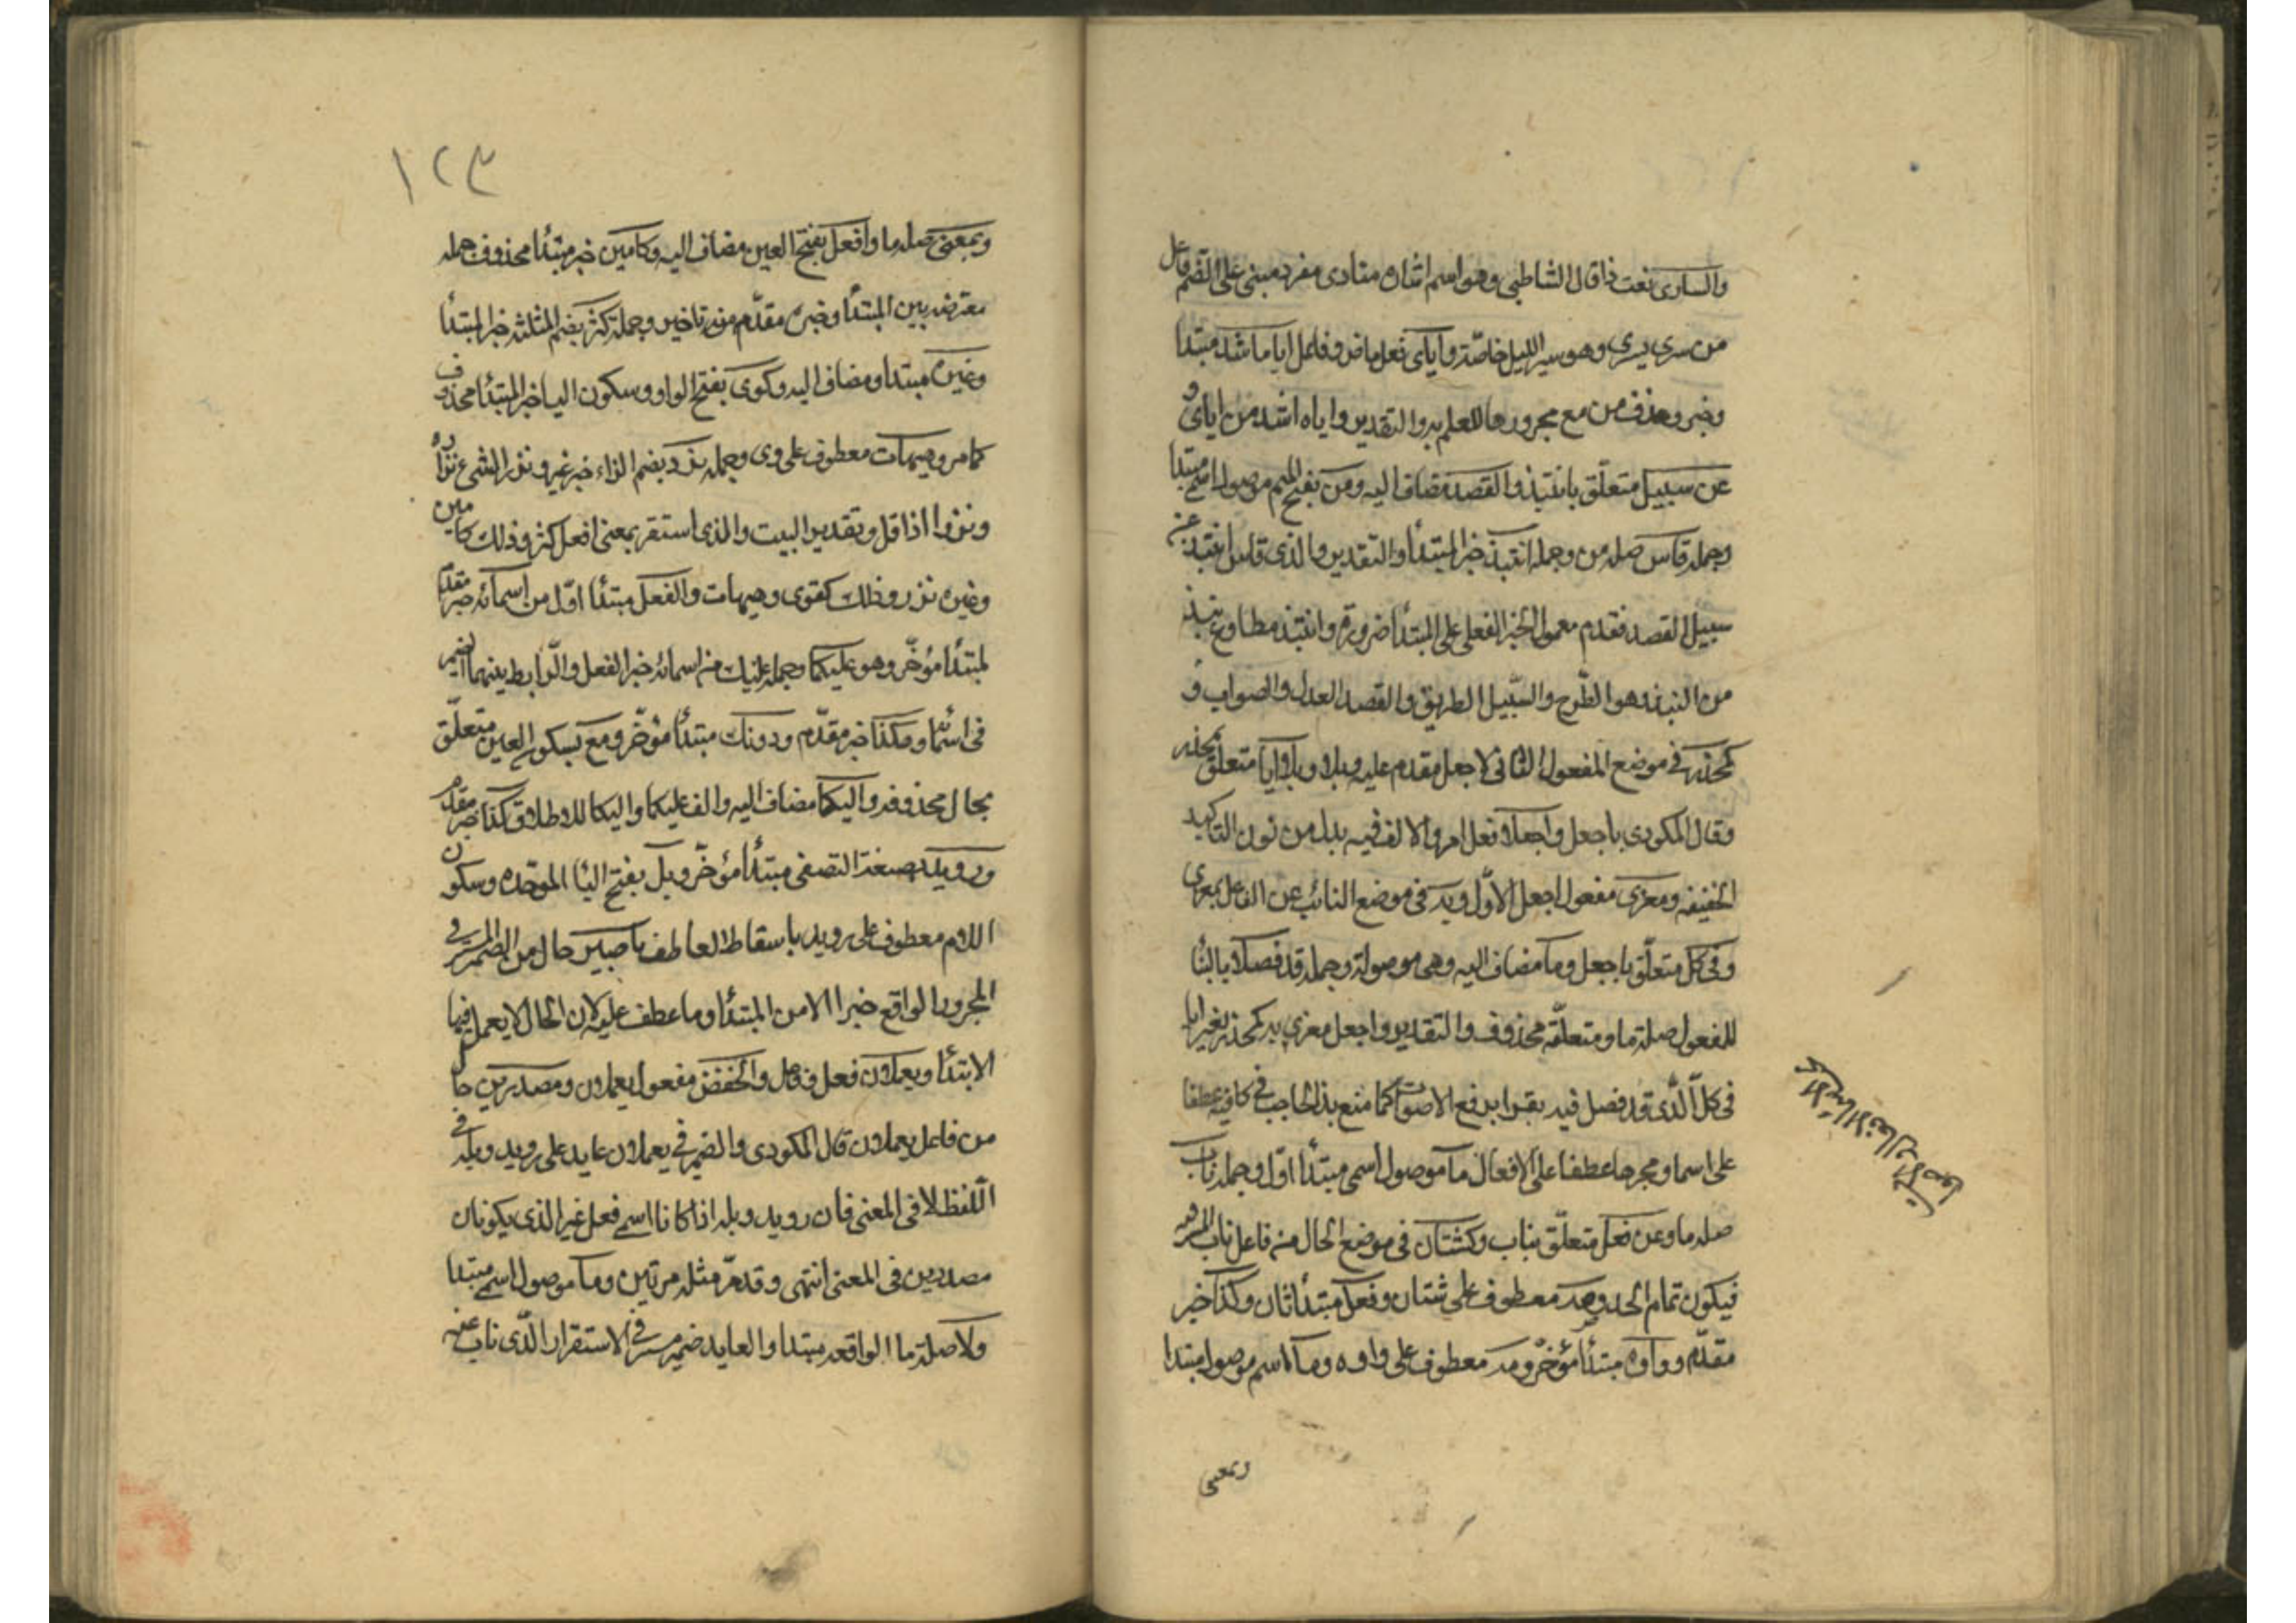 والسارى نعت ذا قال الشاطبى وهو اسم منادى مفرد مبنى على الضم فاعل
من سرى يسرى وهو سير الليل خاصّة وأياى فعل ماض وفاعل اياه اشذ مبتدا
وخبر وحذف من مع مجرورها للعلم به والتقدير واياه اشذ من اياى و
عن سبيل متعلّق بانتبذ والقصد مضاف اليه ومن بفتح الميم موصول اسمى مبتدا
وجملة قاس صلة من وجملة انتبذ خبر المبتدأ والتقدير والذى قاس انتبذ عن
سبيل القصد فقدم معمول الخبر الفعلى على المبتدأ ضرورة وانتبذ مطاوع نبذ
من النبذ وهو الطّرح والسّبيل الطريق والقصد العدل والصواب و
كمحذر فى موضع المفعول الثانى لاجعل مقدم عليه وبلا وبلا ايا متعلق بمحذر
وقال المكودى باجعل واجعلا فعل امر والالف فيه بدل من نون التاكيد
الخفيفه ومغرى مفعول اجعل الاوّل وبه فى موضع النائب عن الفاعل بمغرى
وفى كل متعلّق باجعل وما مضاف اليه وهى موصولة وجملة قد فصلا بالبنا
للمفعول صلة ما ومتعلقه محذوف والتقدير واجعل مغرى به كمحذر بغير ايا
فى كل الّذى قد فصل فيه يقرا برفع الاصوات كما منع بذا الحاجب فى كافيه عطفا
على اسما ومجرها عطفا على الافعال ما موصول اسمى مبتدأ اوّل وجملة ناب
صلة ما وعن فعل متعلّق بناب وكشتان فى موضع الحال من فاعل ناب
فيكون تمام الحد وصه معطوف على شتان وفعل مبتدأ ثان وكذا خبر
مقدّم وواوه مبتدأ مؤخر ومه معطوف على واوه وما اسم موصول مبتدا
وبمعنى
اسماء الافعال والاصوات
١٢٣
وبمعنى صلة ما وافعل بفتح العين مضاف اليه وكآمين خبر مبتدأ محذوف جملة
معترضه بين المبتدأ وخبره مقدّم من تاخير وجملة كثر بضم المثلثه خبر المبتدأ
وغيره مبتدا ومضاف اليه وكوى بفتح الواو وسكون اليا خبر المبتدأ محذوف
كما مر وهيهات معطوف على وى وجملة نزر بضم الزاء خبر غير ونزر الشىء نزاره
ونزورا اذا قل وتقدير البيت والذى استقر بمعنى افعل كثر وذلك كآمين
وغيره نزر وذلك كقوى وهيهات والفعل مبتدأ اوّل من اسمائه خبر مقدّم
لمبتدأ مؤخّر وهو عليكما وجملة عليك من اسمائه خبر الفعل والرّابط بينهما الضمير
فى اسمائه وهكذا خبر مقدّم ودونك مبتدأ مؤخّر ومع بسكون العين متعلّق
بحال محذوفه واليكما مضاف اليه والف عليكما واليكا للاطلاق كذا خبر مقدّم
ورويد بصيغة التصغير مبتدأ مؤخّر وبله بفتح البا الموحّده وسكون
اللام معطوف على رويد باسقاط العاطف ناصبين حال من الضمير المستتر فى
المجرور الواقع خبرا لا من المبتدأ وما عطف عليه لان الحال لا يعمل فيها
الابتدأ ويعملان فعل وفاعل والخفض مفعول يعملان ومصدرين حال
من فاعل يعملان قال المكودى والضمير فى يعملان عايد على رويد وبله فى
اللّفظ لا فى المعنى فان رويد وبله اذا كانا اسمى فعل غير الذى يكونان
مصدرين فى المعنى انتهى وقد مرّ مثله مرتين وما موصول اسمى مبتدا
ولا صلة ما الواقعه مبتدا والعايد ضمير مستتر فى الاستقرار الّذى ناب عنه